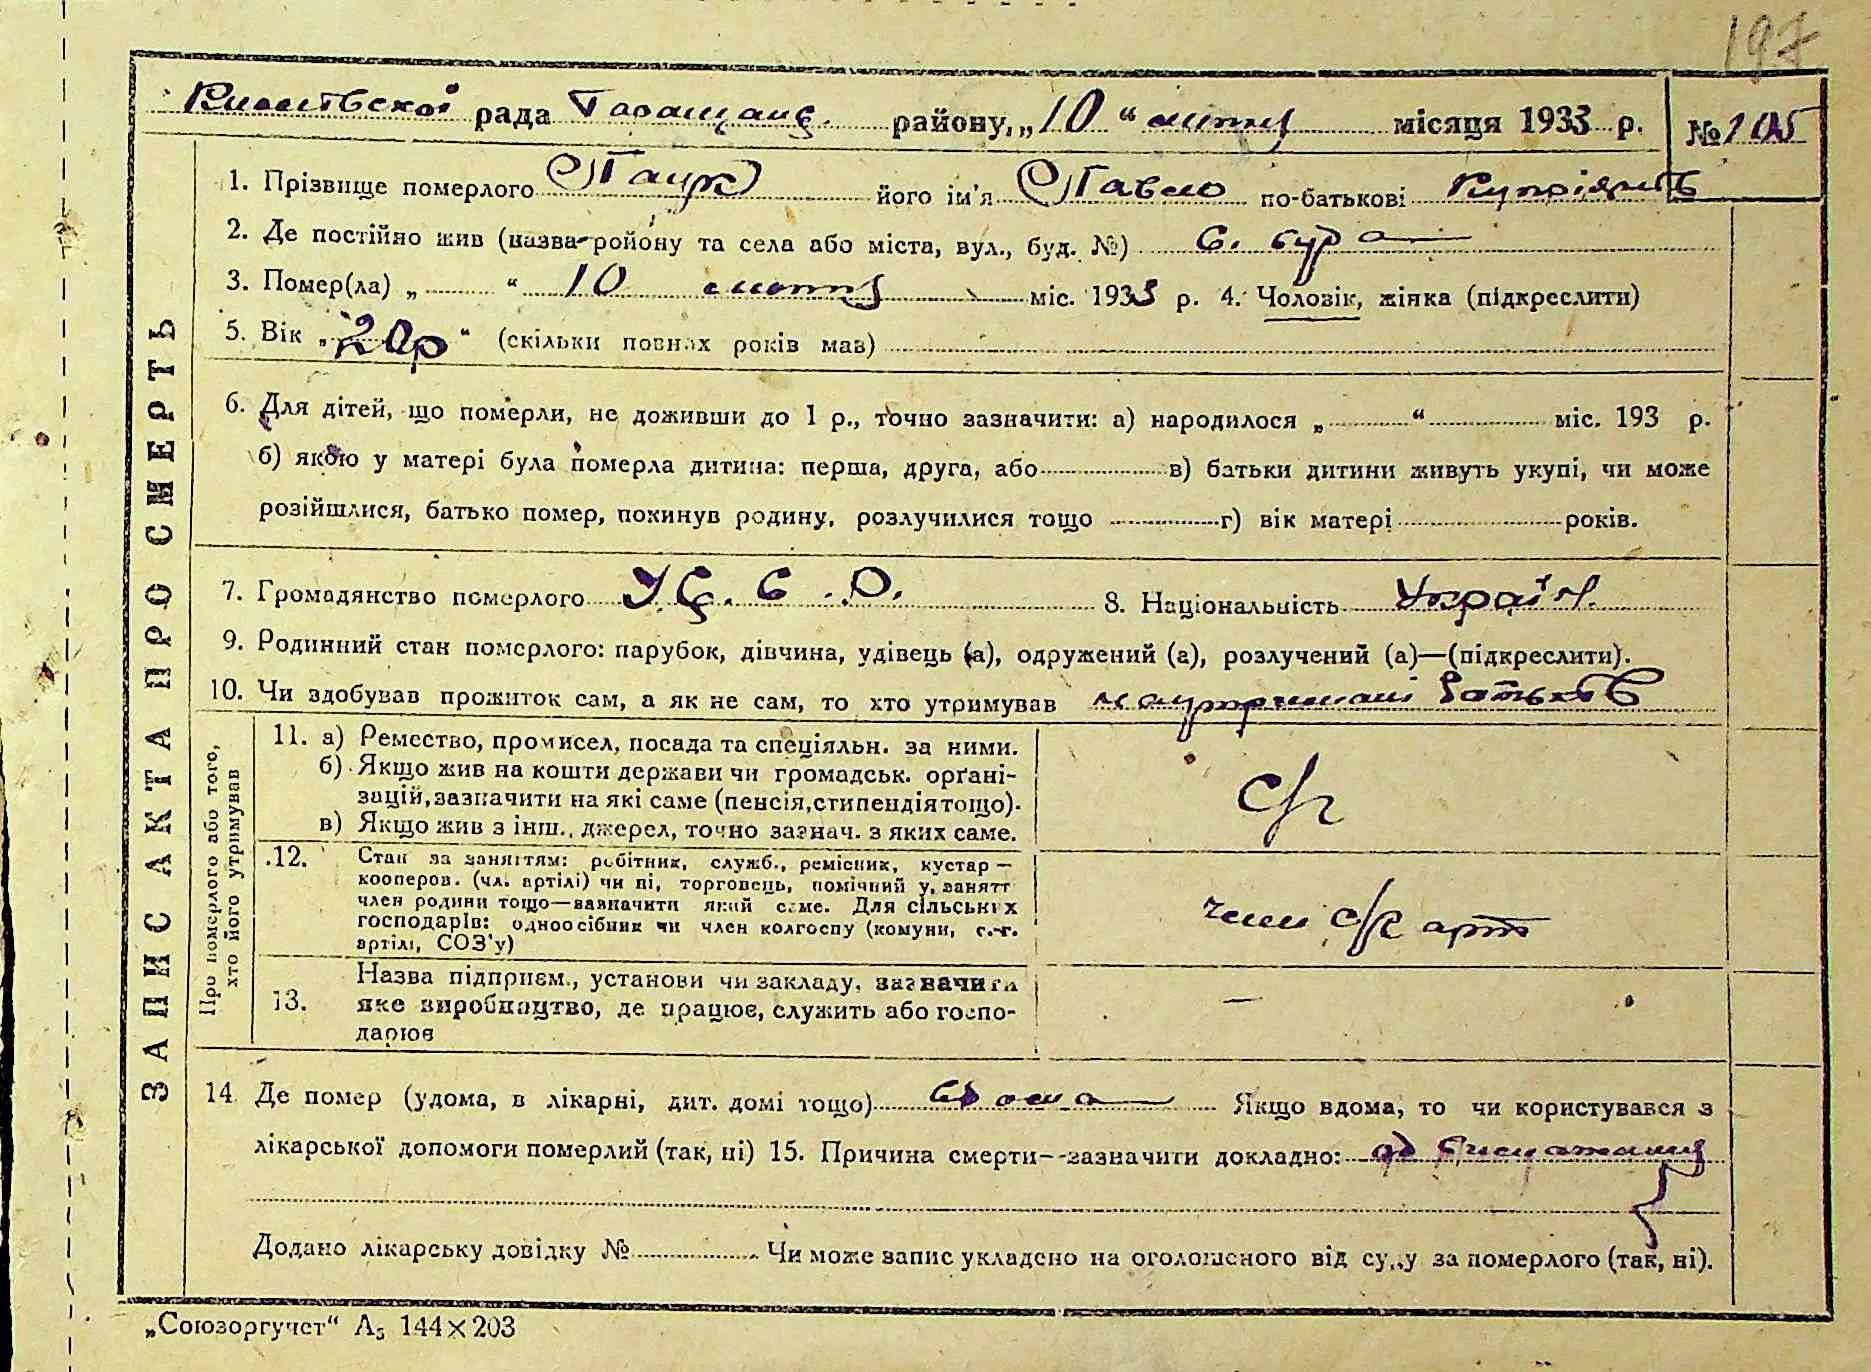 197
рада Таращанс. району, „10“ лютня місяця 1933 р. № 105
1. Прізвище померлого Паук його ім'я Павло по-батькові
2. Де постійно жив (назва ройону та села або міста, вул., буд. №) с.
3. Помер(ла) „ “ 10 лютня міс. 1933 р. 4. Чоловік, жінка (підкреслити)
5. Вік „20р“ (скільки повних років мав)
6. Для дітей, що померли, не доживши до 1 р., точно зазначити: а) народилося „ “ міс. 193 р.
б) якою у матері була померла дитина: перша, друга, або в) батьки дитини живуть укупі, чи може
розійшлися, батько помер, покинув родину, розлучилися тощо г) вік матері років.
7. Громадянство померлого У.С.С.Р. 8. Національність Україн.
9. Родинний стан померлого: парубок, дівчина, удівець (а), одружений (а), розлучений (а)—(підкреслити).
10. Чи здобував прожиток сам, а як не сам, то хто утримував на утриманні батьків
ЗАПИС АКТА ПРО СМЕРТЬ
Про померлого або того,
хто його утримував
11. а) Ремество, промисел, посада та спеціяльн. за ними.
б) Якщо жив на кошти держави чи громадськ. орґані-
зацій, зазначити на які саме (пенсія, стипендія тощо).
в) Якщо жив з інш. джерел, точно зазнач. з яких саме.
с/г
12. Стан за заняттям: робітник, служб., ремісник, кустар —
кооперов. (чл. артілі) чи ні, торговець, помічний у занятт
член родини тощо—зазначити який саме. Для сільських
господарів: одноосібник чи член колгоспу (комуни, с.-г.
артілі, СОЗ'у)
член с/г арт
13. Назва підприєм., установи чи закладу, зазначити
яке виробництво, де працює, служить або госпо-
дарює
—
14. Де помер (удома, в лікарні, дит. домі тощо) вдома Якщо вдома, то чи користувався з
лікарської допомоги померлий (так, ні) 15. Причина смерти--зазначити докладно: од
Додано лікарську довідку № Чи може запис укладено на оголошеного від суду за померлого (так, ні).
„Союзоргучет“ А₅ 144×203